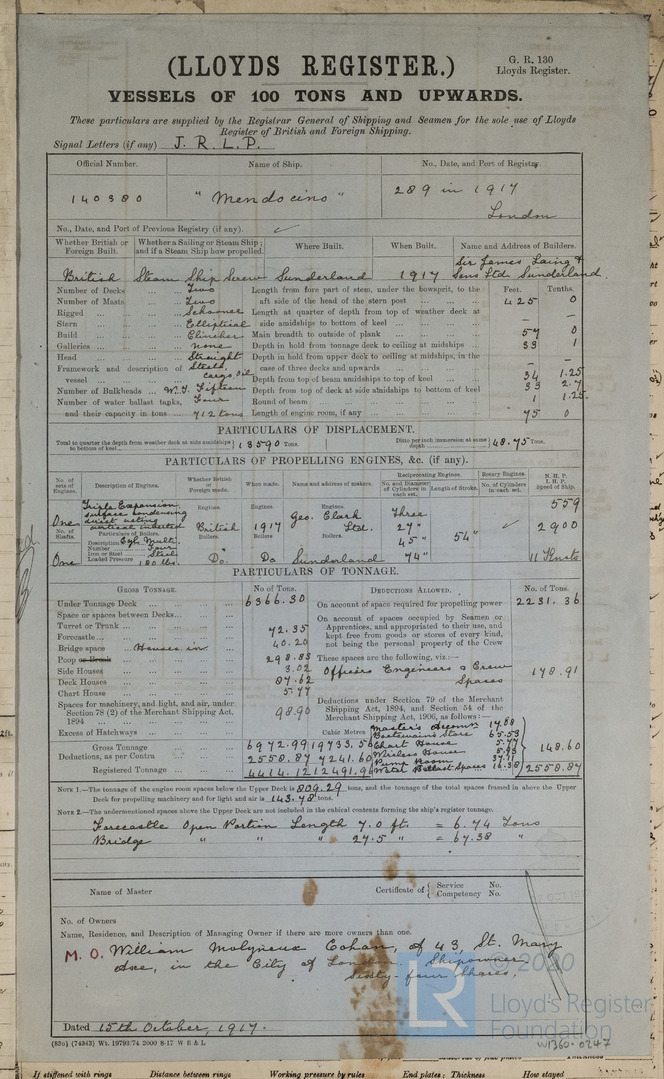 (LLOYDS REGISTER.)
G. R. 130
Lloyds Register.
VESSELS OF 100 TONS AND UPWARDS.
These particulars are supplied by the Registrar General of Shipping and Seamen for the sole use of Lloyds
Register of British and Foreign Shipping.
Signal Letters (if any) J. R. L. P.
Official Number. Name of Ship. No., Date, and Port of Registry.
140380 "Mendocino" 289 in 1917
London
No., Date, and Port of Previous Registry (if any).
Whether British or Foreign Built. Whether a Sailing or Steam Ship; and if a Steam Ship how propelled. Where Built. When Built. Name and Address of Builders.
British Steam Ship Screw Sunderland 1917 Sir James Laing & Sons Ltd. Sunderland
Number of Decks ... Two Length from fore part of stem, under the bowsprit, to the Feet. Tenths.
Number of Masts ... Two aft side of the head of the stern post ... 425 0
Rigged ... Schooner Length at quarter of depth from top of weather deck at
Stern ... Elliptical side amidships to bottom of keel ... —
Build ... Clincher Main breadth to outside of plank ... 57 0
Galleries ... none Depth in hold from tonnage deck to ceiling at midships ... 33 1
Head ... Straight Depth in hold from upper deck to ceiling at midships, in the
Framework and description of Steel, case of three decks and upwards ... —
vessel ... cargo, oil Depth from top of beam amidships to top of keel ... 34 1.25
Number of Bulkheads ... W.T. Fifteen Depth from top of deck at side amidships to bottom of keel 33 2.7
Number of water ballast tanks, Four Round of beam ... 1 1.25
and their capacity in tons ... 712 tons Length of engine room, if any ... 75 0
PARTICULARS OF DISPLACEMENT.
Total to quarter the depth from weather deck at side amidships to bottom of keel } 13590 Tons. Ditto per inch immersion at same depth } 48.75 Tons.
PARTICULARS OF PROPELLING ENGINES, &c. (if any).
No. of sets of Engines. Description of Engines. Whether British or Foreign made. When made. Name and address of makers. Reciprocating Engines. Rotary Engines. N. H. P. I. H. P. Speed of Ship.
No. and Diameter of Cylinders in each set. Length of Stroke. No. of Cylinders in each set.
One Triple Expansion, surface condensing direct acting vertical inverted Engines. British Engines. 1917 Engines. Geo. Clark Ltd. Three 27" 45" 74" 54" 559 2900 11 Knots
No. of Shafts. Particulars of Boilers. Boilers. Boilers. Boilers.
Description Cyl. Multi.
Number ... Four
Iron or Steel Steel
One Loaded Pressure 180 lbs. Do. Do Sunderland
PARTICULARS OF TONNAGE.
Gross Tonnage. No of Tons. Deductions Allowed. No. of Tons.
Under Tonnage Deck ... 6366.30 On account of space required for propelling power 2231.36
Space or spaces between Decks...
Turret or Trunk ... 72.35 On account of spaces occupied by Seamen or
Forecastle... 40.20 Apprentices, and appropriated to their use, and
Bridge space ... Houses in kept free from goods or stores of every kind,
not being the personal property of the Crew
Poop or Break ... 298.83 These spaces are the following, viz.:—
Side Houses ... 3.02 Officers Engineers & Crew Spaces 178.91
Deck Houses ... 87.62
Chart House ... 5.77
Spaces for machinery, and light, and air, under
Section 78 (2) of the Merchant Shipping Act,
1894 ... 98.90
Deductions under Section 79 of the Merchant
Shipping Act, 1894, and Section 54 of the
Merchant Shipping Act, 1906, as follows:—
Excess of Hatchways ... Cubic Metres Master's Accomm 17.58
Boatswain's Store 65.53
Gross Tonnage 6972.99 19733.56 Chart House 5.77
Deductions, as per Contra 2558.87 7241.60 Wireless House 5.93
Pump Room 37.41
148.60
Registered Tonnage ... 4414.12 12491.96 Water Ballast Spaces 16.38 2558.87
Note 1.—The tonnage of the engine room spaces below the Upper Deck is 809.29 tons, and the tonnage of the total spaces framed in above the Upper
Deck for propelling machinery and for light and air is 143.78 tons.
Note 2.—The undermentioned spaces above the Upper Deck are not included in the cubical contents forming the ship's register tonnage.
Forecastle Open Portion Length 7.0 ft. = 6.74 Tons
Bridge " " " 27.5 " = 67.38 "
Name of Master Certificate of { Service No. Competency No.
No. of Owners
Name, Residence, and Description of Managing Owner if there are more owners than one.
M. O. William Molyneux Cohan, of 43, St. Mary
Axe, in the City of London Shipowner
Sixty-four Shares.
© 2020
LR
Lloyd's Register
Foundation
Dated 15th October, 1917.
(83o) (74343) Wt. 19793/74 2000 8-17 W B & L
W1360-0247
If stiffened with rings Distance between rings Working pressure by rules End plates: Thickness How stayed